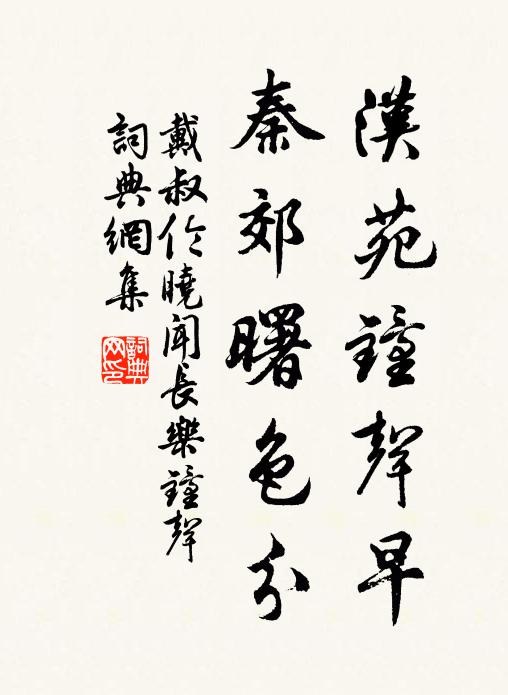 漢苑鐘聲早
秦郊曙色分
戴叔伦曉聞長樂鐘聲
詞典網集
詞典網印